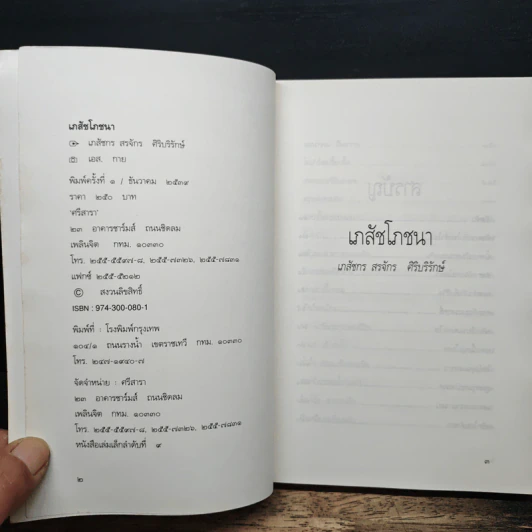 เภสัชโภชนา
เภสัชกร สรจักร ศิริบริรักษ์
เอส. กาย
พิมพ์ครั้งที่ ๑ / ธันวาคม ๒๕๓๙
ราคา ๒๕๐ บาท
"ศรีสารา"
๒๓ อาคารชาร์มส์ ถนนชิดลม
เพลินจิต กทม. ๑๐๓๓๐
โทร. ๒๕๕-๕๕๙๗-๘, ๒๕๕-๗๓๒๖, ๒๕๕-๗๘๓๑
แฟกซ์ ๒๕๕-๕๒๑๒
© สงวนลิขสิทธิ์
ISBN : 974-300-080-1
พิมพ์ที่ : โรงพิมพ์กรุงเทพ
๑๐๔/๑ ถนนรางน้ำ เขตราชเทวี กทม. ๑๐๓๓๐
โทร. ๒๔๗-๑๙๔๐-๗
จัดจำหน่าย : ศรีสารา
๒๓ อาคารชาร์มส์ ถนนชิดลม
เพลินจิต กทม. ๑๐๓๓๐
โทร. ๒๕๕-๕๕๙๗-๘, ๒๕๕-๗๓๒๖, ๒๕๕-๗๘๓๑
หนังสือเล่มเล็กลำดับที่ ๙
๒
เภสัชโภชนา
เภสัชกร สรจักร ศิริบริรักษ์
๓